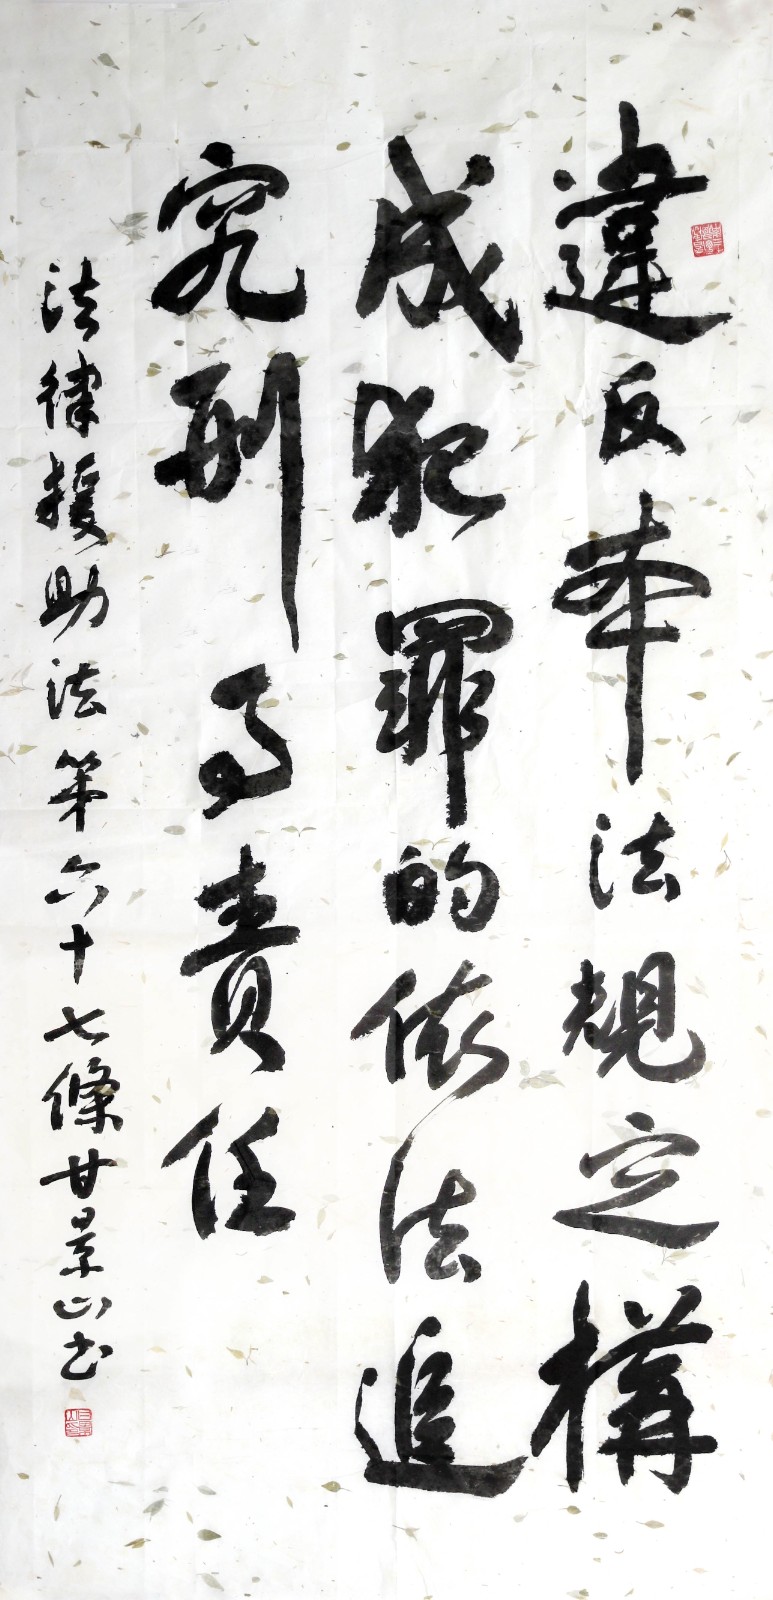 違反本法規定構
成犯罪的依法追
究刑事責任
法律援助法第六十七條甘景山书